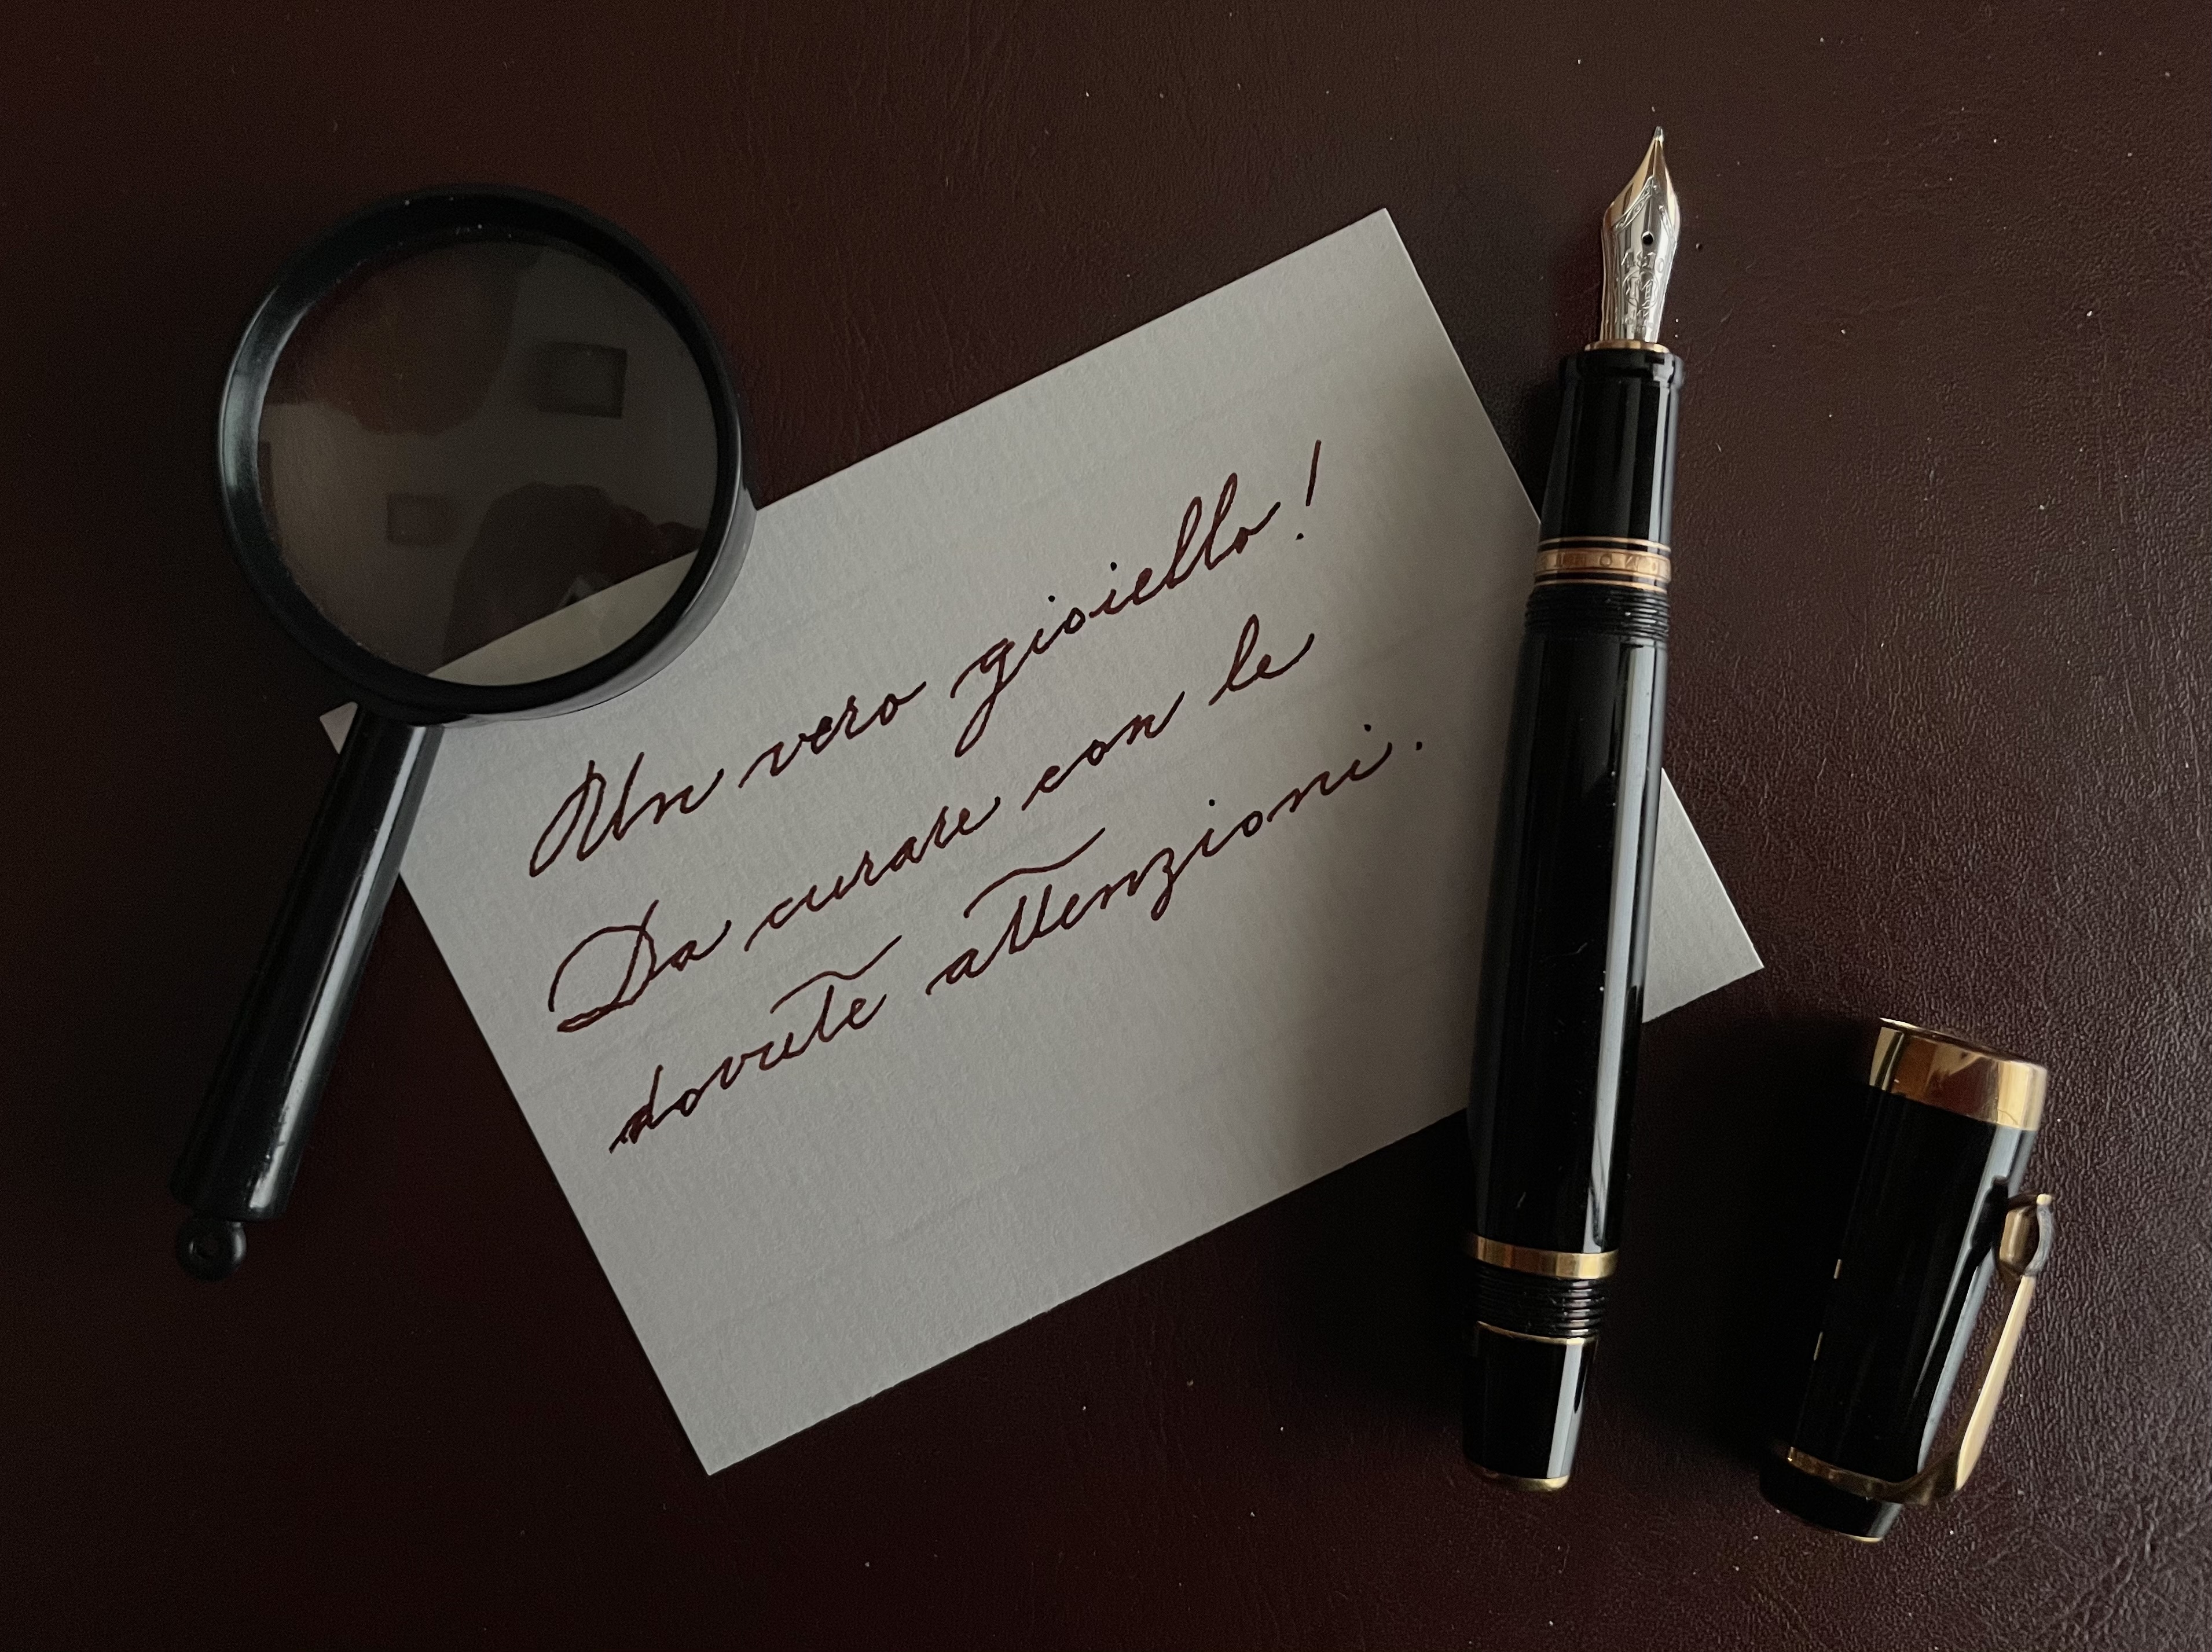 Un vero gioiello!
Da curare con le
dovute attenzioni.